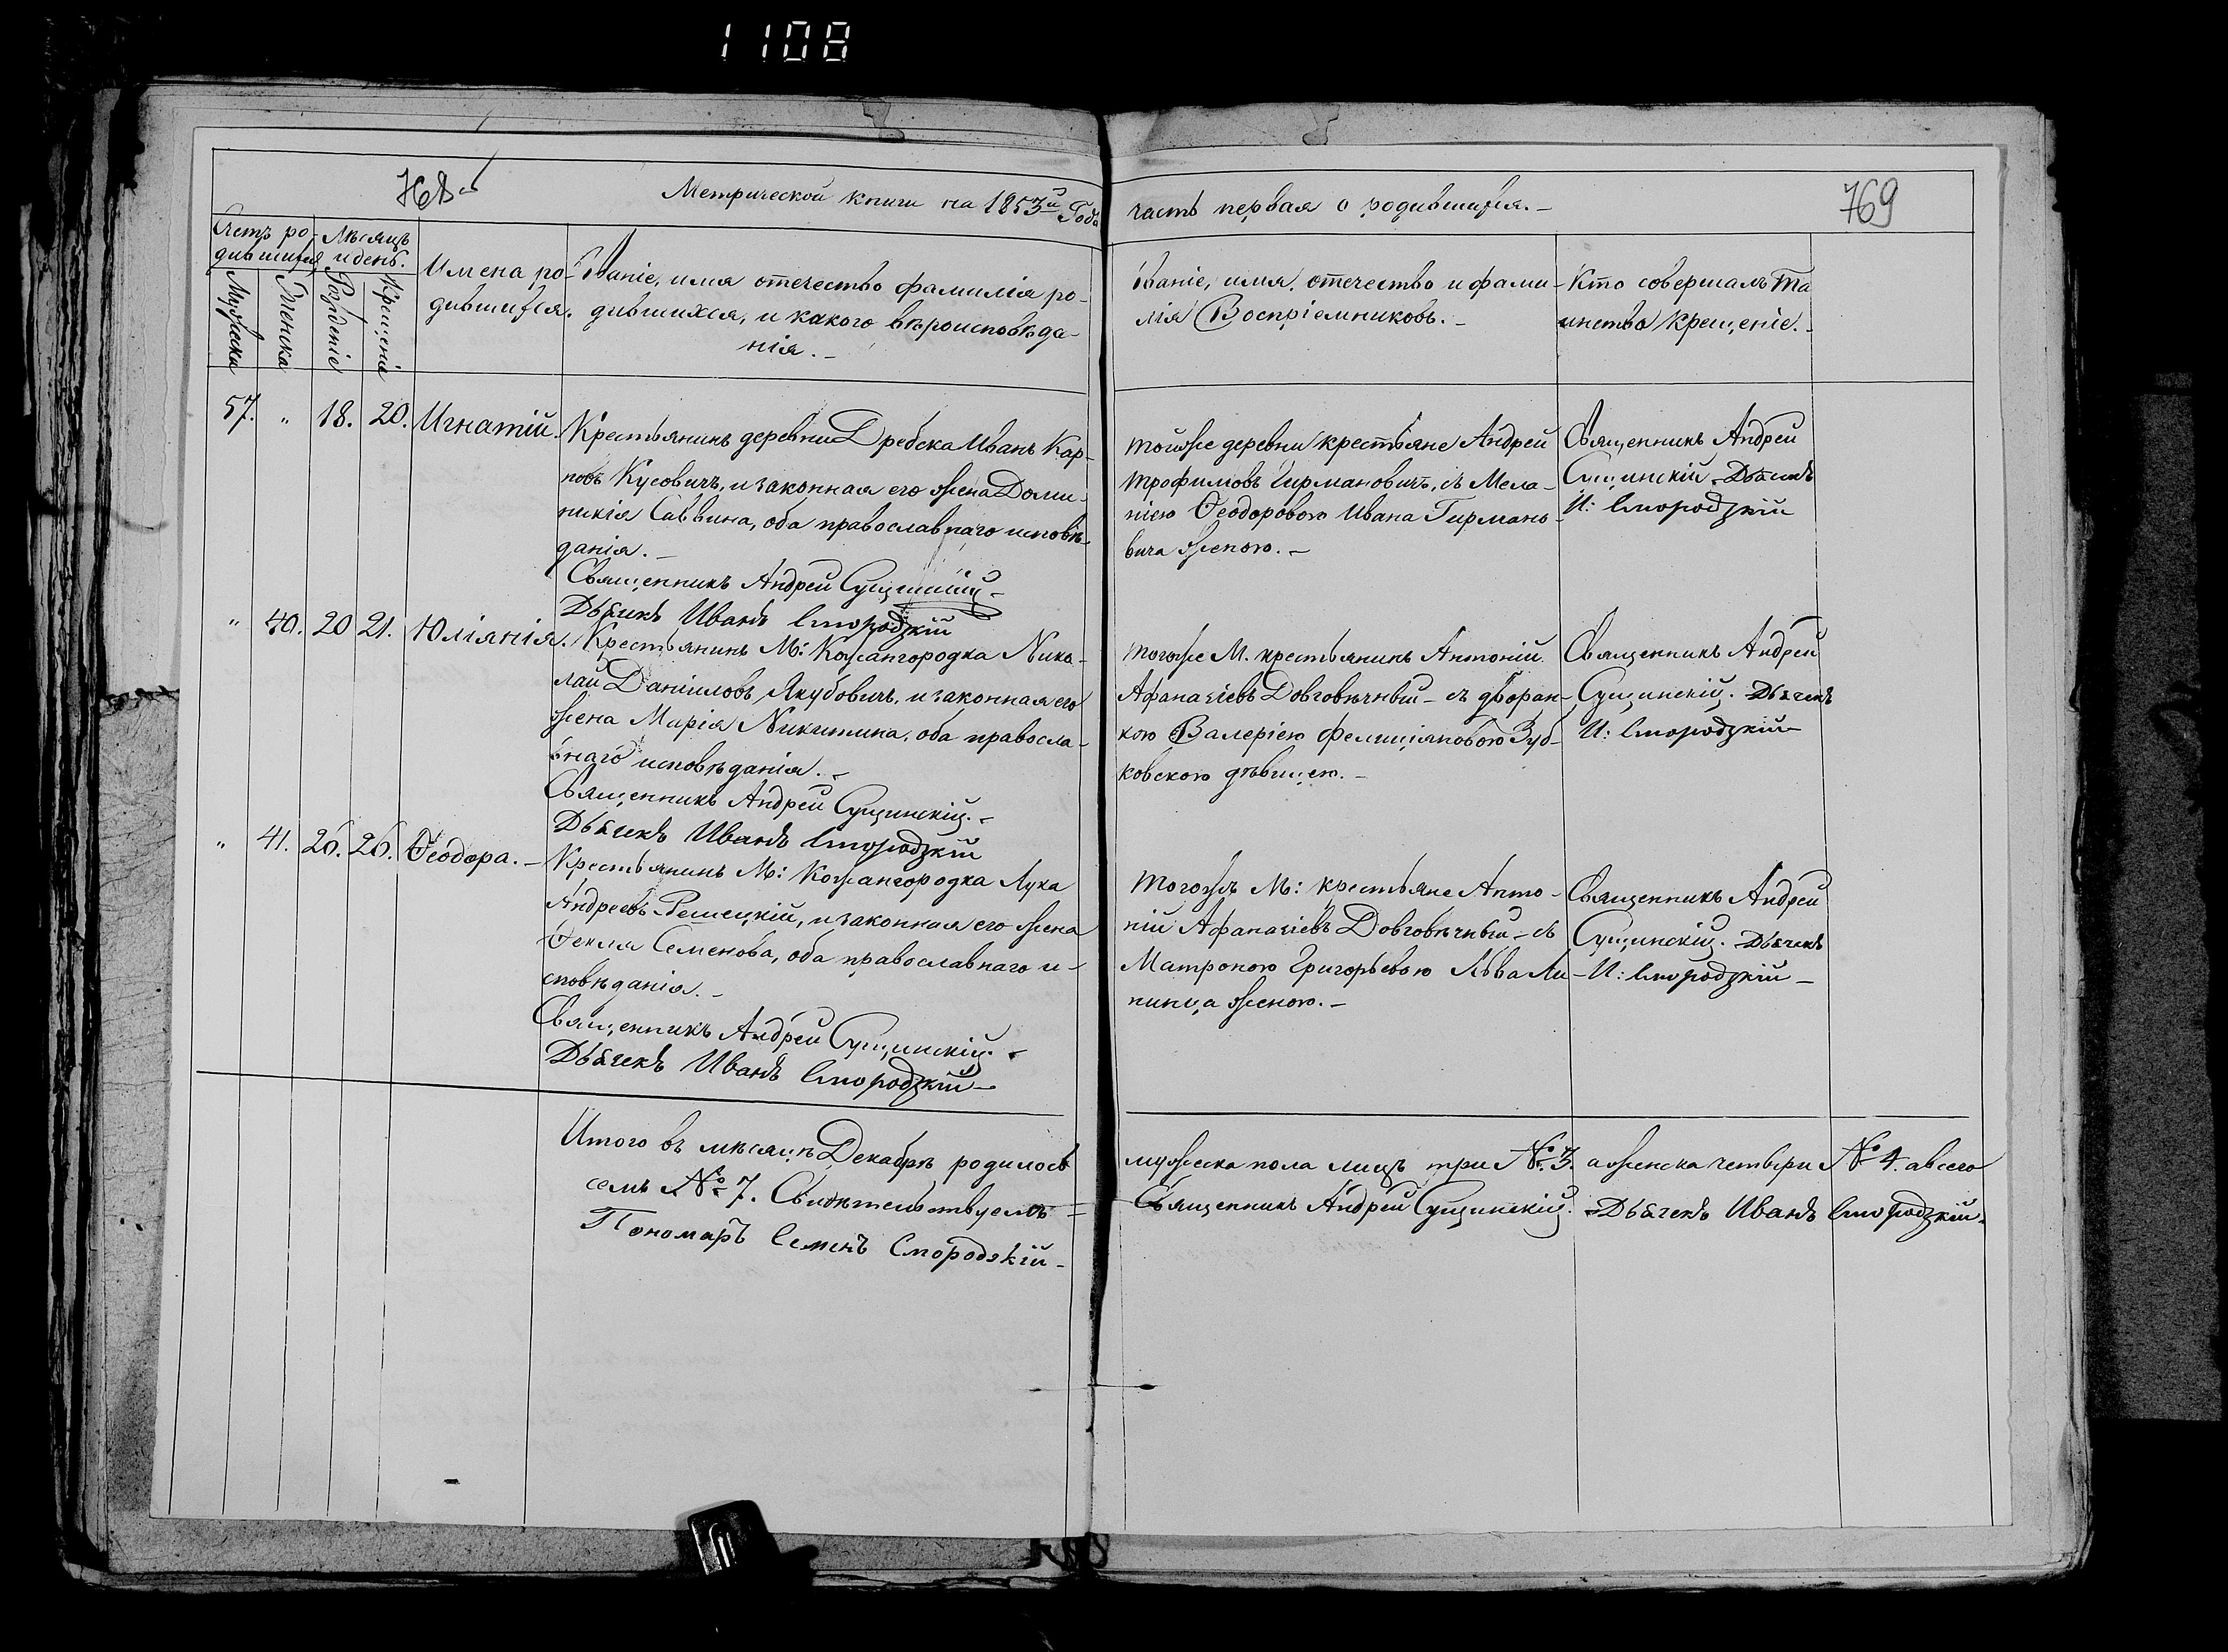 1108
768 об
Метрической книги на 1853й Годъ
часть первая о родившихся.
769
Счетъ ро-
дившихся
Мѣсяцъ
и день.
Мужеска
Женска
Рожденіе
Крещеніе
Имена ро-
дившихся.
Званіе, имя отечество фамилія ро-
дившихся, и какого вѣроисповѣда-
нія.
Званіе, имя, отечество и фами-
лія Воспріемниковъ.
Кто совершалъ та
инство крещеніе.
57. " 18. 20. Игнатій.
Крестьянинъ деревни Дребска Иванъ Кар-
повъ Кусовичъ, и законная его жена Доми-
никія Саввина, оба православнаго исповѣ-
данія.
Священникъ Андрей Сущинскій
Дьячекъ Иванъ Смородзкій
тойже деревни крестьяне Андрей
Трофимовъ Гирмановичъ, съ Мела-
ніею Ѳеодоровою Ивана Гирмано-
вича женою.
Священникъ Андрей
Сущинскій. Дьячекъ
И: Смородзкій
" 40. 20 21. Юліанія.
Крестьянинъ М: Кожангородка Нико-
лай Даніиловъ Якубовичъ, и законная его
жена Марія Никитина, оба правосла-
внаго исповѣданія.
Священникъ Андрей Сущинскій.
Дьячекъ Иванъ Смородзкій
тогоже М. крестьянинъ Антоній
Афанасіевъ Довговѣчный съ дворян-
кою Валеріею Фелиціяновою Зуб-
ковскою дѣвицею.
Священникъ Андрей
Сущинскій. Дьячекъ
И: Смородзкій
" 41. 26. 26. Ѳеодора.
Крестьянинъ М: Кожангородка Лука
Андреевъ Решецкій, и законная его жена
Ѳекля Семенова, оба православнаго и-
сповѣданія.
Священникъ Андрей Сущинскій.
Дьячекъ Иванъ Смородзкій
тогожъ М: крестьяне Анто-
ній Афанасіевъ Довговѣчный съ
Матроною Григорьевою Льва Ли-
пинца женою.
Священникъ Андрей
Сущинскій. Дьячекъ
И: Смородзкій
Итого въ мѣсяцѣ Декабрѣ родилось
мужеска пола лицъ три № 3. а женска четыри № 4. а всего
семъ № 7. Свидѣтельствуемъ =
Священникъ Андрей Сущинскій. Дьячекъ Иванъ Смородзкій.
Пономарь Семенъ Смородзкій